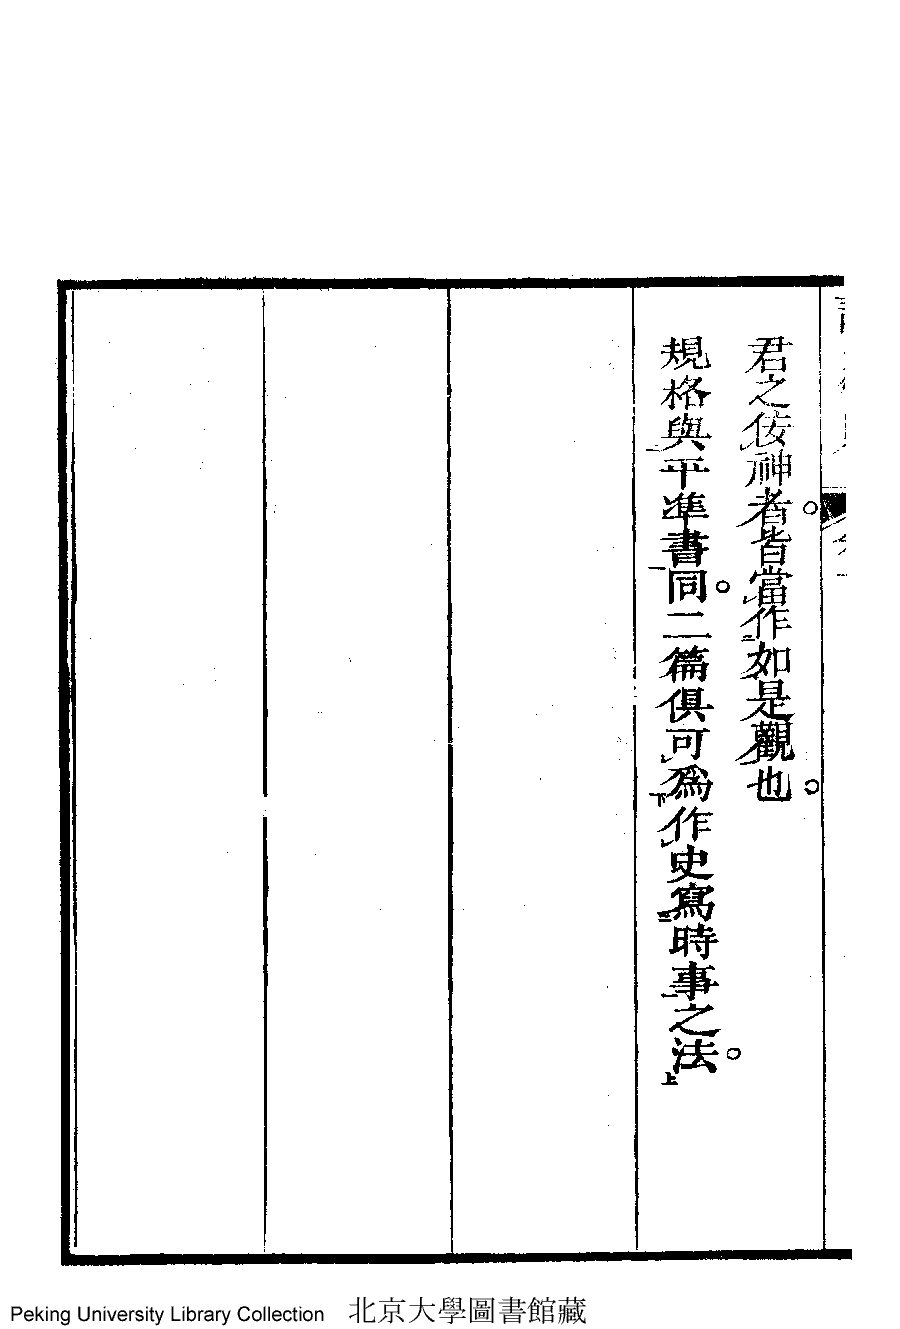 君之佞神者。皆當作如是觀也。
規格與平準書同。二篇俱可爲作史寫時事之法。
Peking University Library Collection 北京大學圖書館藏